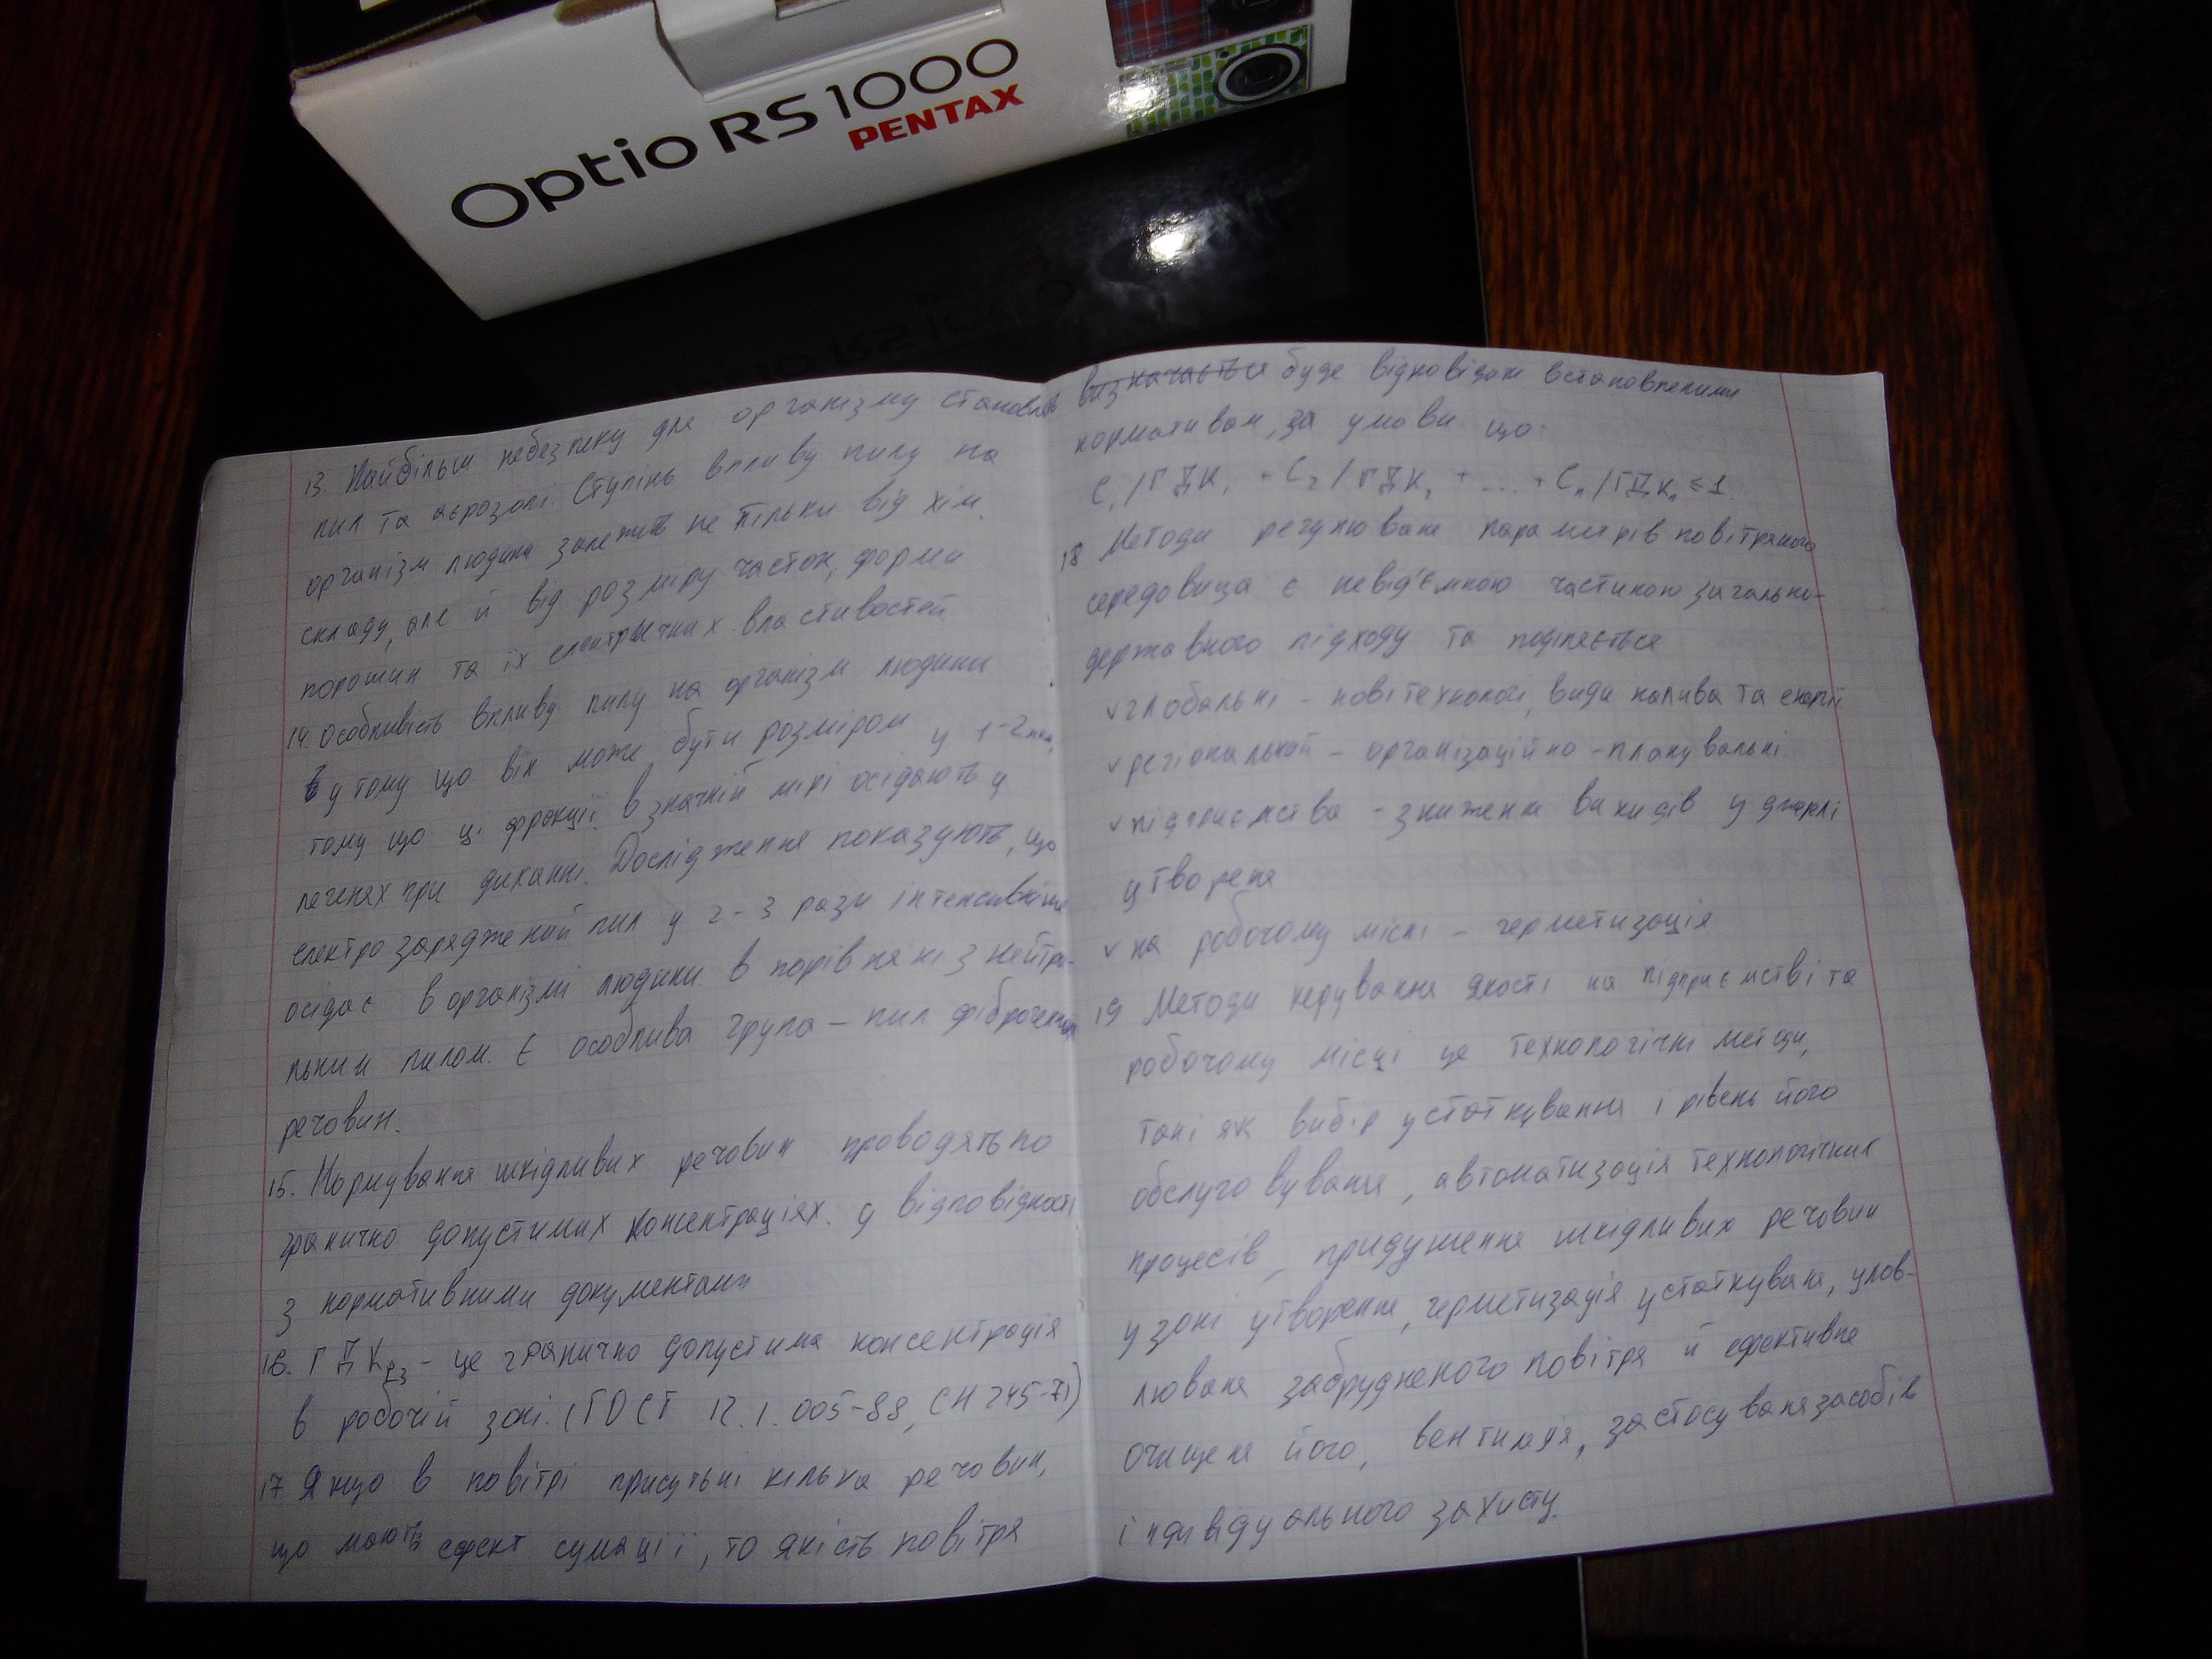 Optio RS1000
PENTAX
13. Найбільш небезпеку для організму становлять
пил та аєрозолі. Ступінь впливу пилу на
організм людини залежить не тільки від хім.
складу, але й від розміру часток, форми
порошин та їх електричних властивостей.
14. Особливість впливу пилу на організм людини
в у тому що він може бути розміром у 1-2мкм,
тому що ці фракції в значній мірі осідають у
легенях при диханні. Дослідження показують, що
електрозаряджений пил у 2-3 рази інтенсивніше
осідає в організмі людини в порівнянні з нейтра-
льним пилом. Є особлива група - пил фіброгених
речовин.
15. Нормування шкідливих речовин проводять по
гранично допустимих концентраціях у відповідності
з нормативними документами
16. ГДКрз - це гранично допустима консентрація
в робочій зоні. (ГОСТ 12.1.005-88, СН 245-71)
17 Якщо в повітрі присутьні кілька речовин,
що мають ефект сумації, то якість повітря
визначається буде відповідати встановленими
нормативам, за умови що:
C₁/ГДК₁ + C₂/ГДК₂ + ... + Cₙ/ГДКₙ ≤ 1.
18 Методи регулюваня параметрів повітряного
середовища є невід'ємною частиною загально-
державного підходу та поділяється
✓ глобальні - нові технологі, види палива та енергії
✓ регіональний - організаційно-планувальні.
✓ підприємства - зниження викидів у джерлі
утвореня
✓ на робочому місці - герметизація.
19 Методи керування якості на підприємстві та
робочому місці це технологічні методи,
такі як вибір устаткування і рівень його
обслуговування, автоматизація технологічних
процесів, придушення шкідливих речовин
у зоні утворення, герметизація устаткуваня, улов-
люваня забрудненого повітря й ефективне
очищеня його, вентиляція, застосуваня засобів
індивідуального захисту.